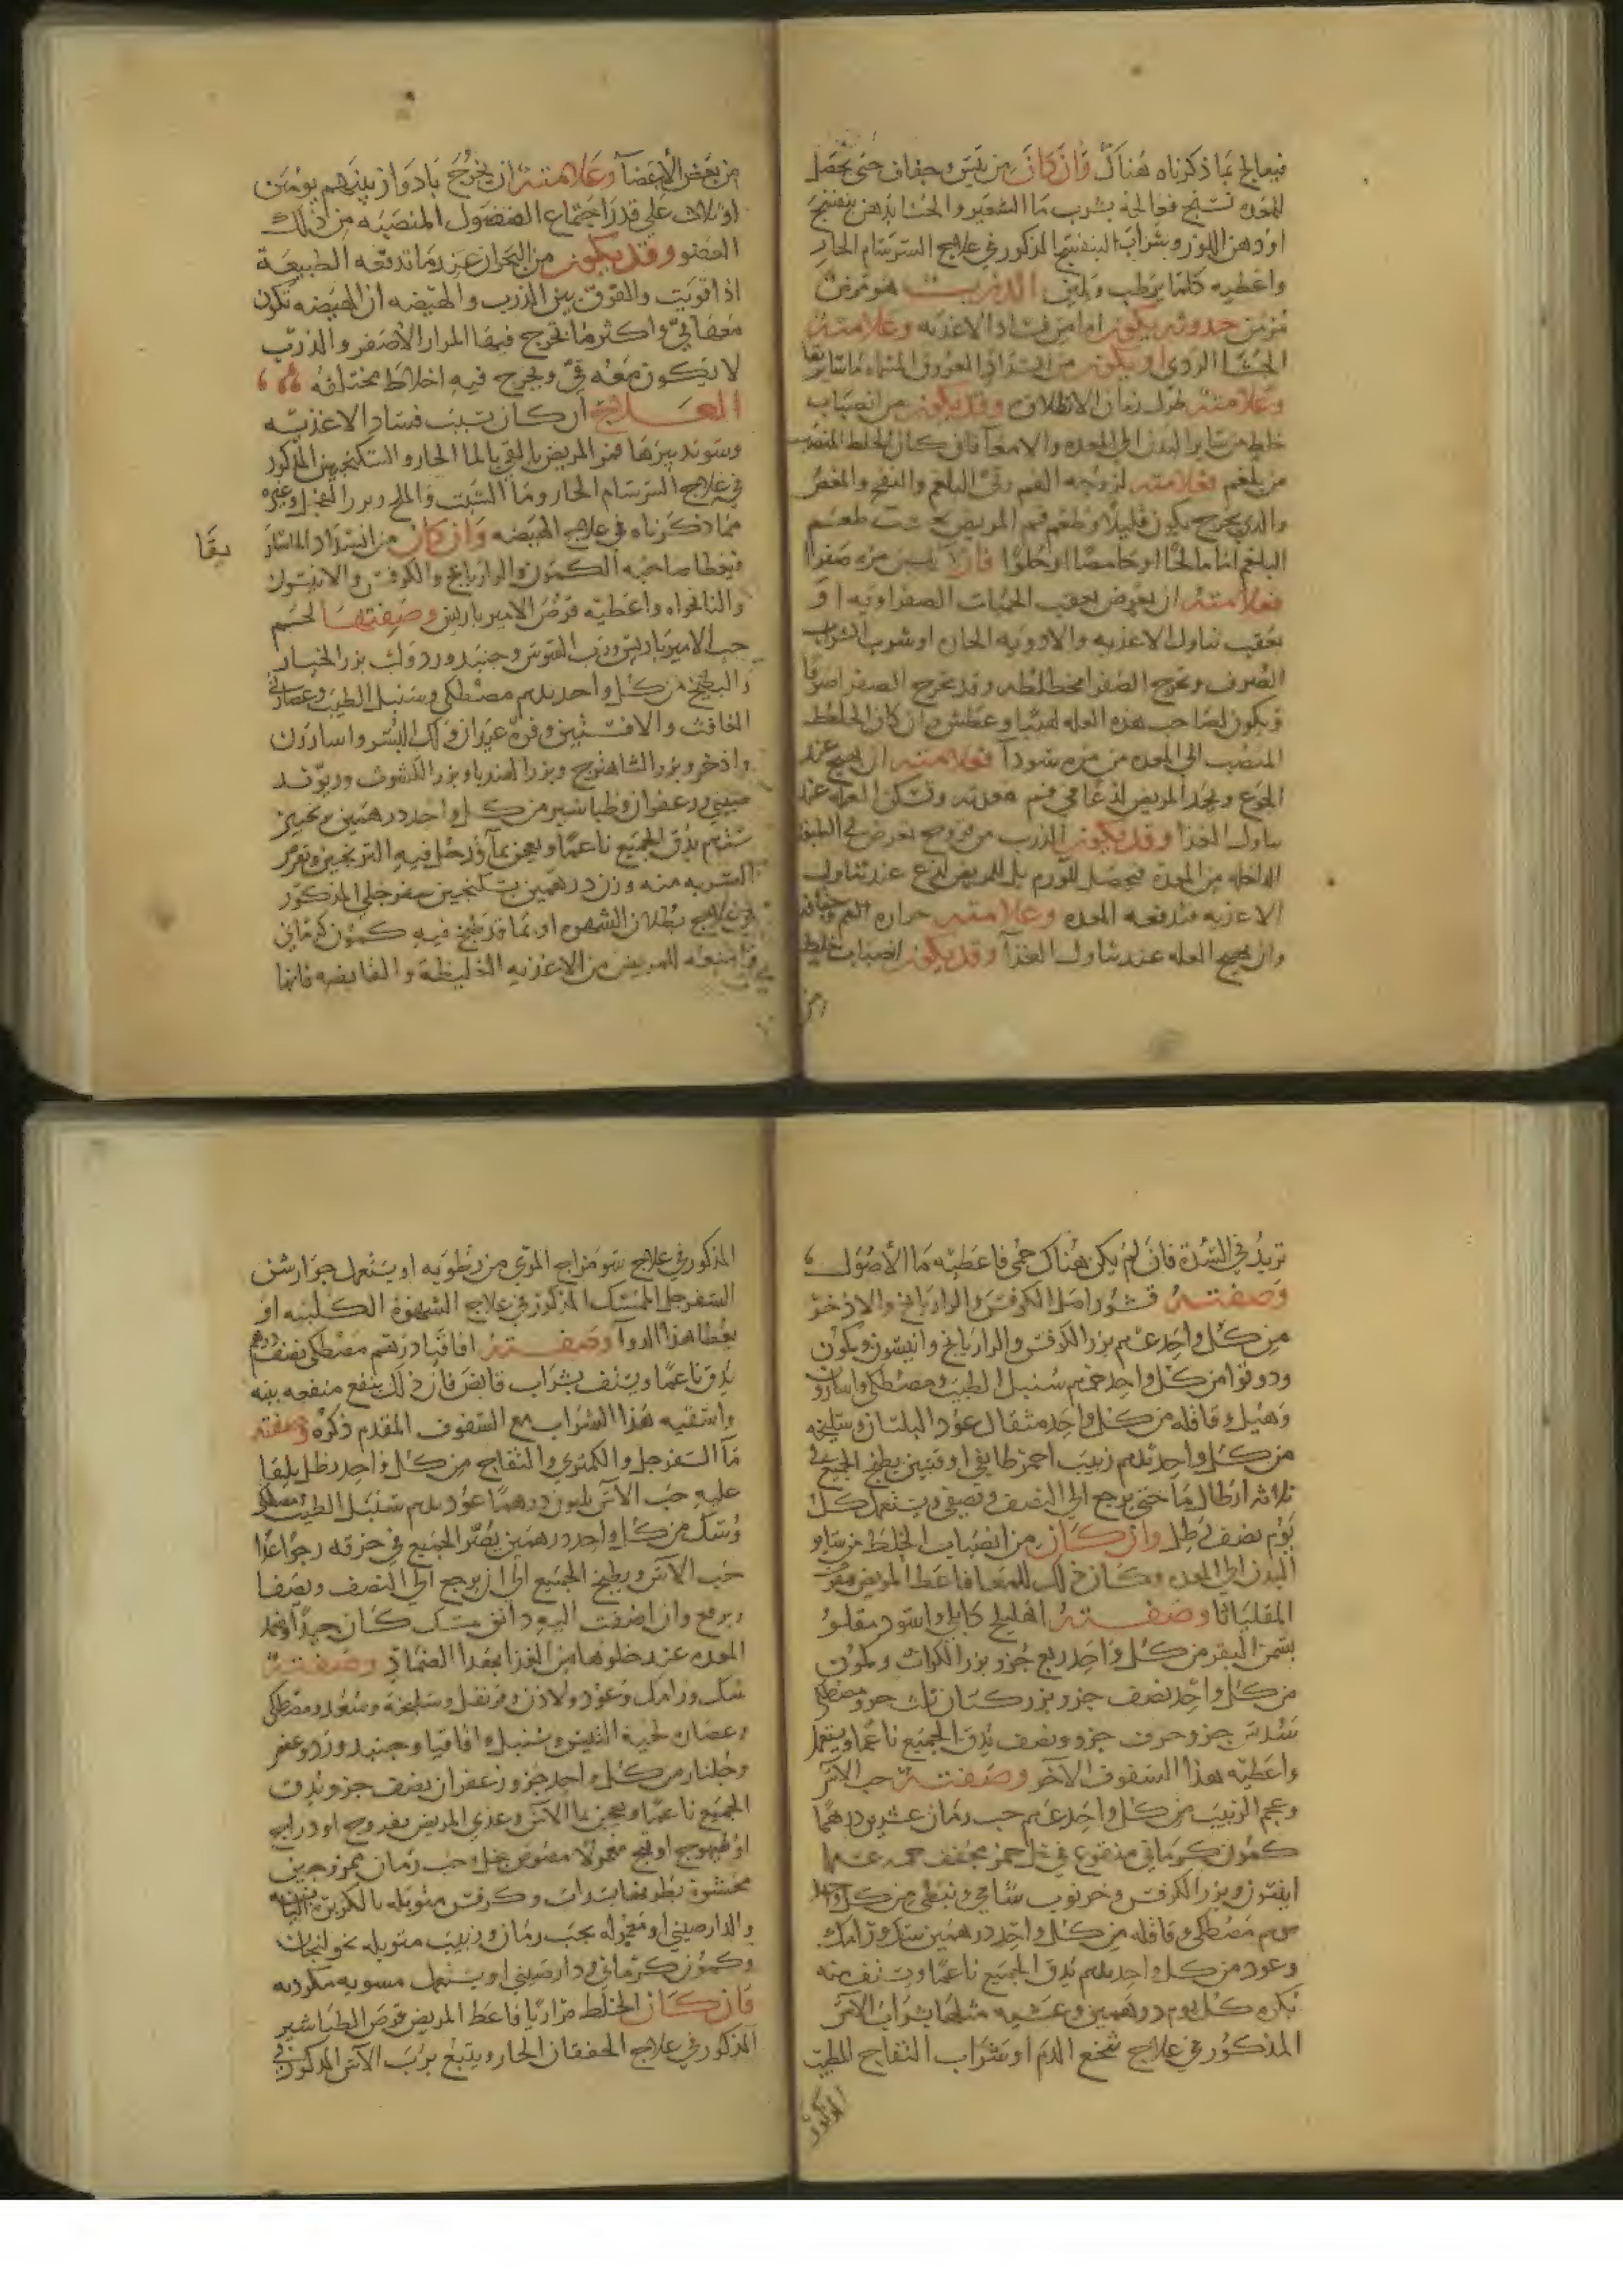 فيعالج بما ذكرناه هناك وان كان من يبس وجفاف حتى يحصل
للمعده تشنج فعالجه بشرب ما الشعير والحسا بدهن بنفسج
او دهن اللوز وبشراب البنفسج المذكور في علاج السرسام الحار
واعطيه كلما يرطب ويلين الذرب هو مرض
مزمن حدوثه يكون اما من فساد الاغذيه وعلامته
الجشا الردى او يكون من انسداد العروق المسماه ماساريقا
وعلامته طول زمان الانطلاق وقد يكون من انصباب
خلط من ساير البدن الى المعده والامعآ فان كان الخلط المنصب
من بلغم فعلامته لزوجه الفم وقى البلغم والنفخ والمغص
والذي يخرج يكون قليلا وطعم فم المريض بحسب طعم
البلغم اما مالحًا او حامضًا او حلوًا فان مره صفرا
فعلامته ان يعرض بعقب الحميات الصفراويه او
بعقب تناول الاغذيه والادويه الحاره او شرب الشراب
الصرف وتخرج الصفرا مختلطه وقد تخرج الصفرا صرفا
ويكون لصاحب هذه العله لهيبا وعطش وان كان الخلط
المنصب الى المعده من مره سودآ فعلامته ان يهيج عند
الجوع ويجد المريض لذعا في فم معدته وتسكن العله عند
تناول الغذا وقد يكون الذرب من قروح تعرض في الطبقه
الداخله من المعده فيحصل للمريض لذع عند تناول
الاغذيه فتدفعه المعده وعلامته حراره الفم وجفافه
وان يهيج العله عند تناول الغذآ وقد يكون انصباب خلط
من
من بعض الأعضآ وعلامته ان يخرج بادوار بينهم يومين
او ثلاث على قدر اجتماع الفضول المنصبه من ذلك
العضو وقد يكون من البحران عندما تدفعه الطبيعة
اذا قويت والفرق بين الذرب والهيضه ان الهيضه تكون
معها قي واكثر ما تخرج فيها المرار الأصفر والذرب
لا يكون معه قي ويخرج فيه اخلاط مختلفه
العلاج ان كان بسبب فساد الاغذيه
وسو تدبيرها فمر المريض بالقي بالما الحار والسكنجبين المذكور
في علاج السرسام الحار وما الشبت والملح وبزر الفجل وغيره
مما ذكرناه في علاج الهيضه وان كان من انسداد الماسار
يقا
فيعطا صاحبه الكمون والرازيانج والكرفس والانيسون
والنانخواه واعطيه قرص الاميرباريس وصفتها لحم
حب الاميرباريس ورب السوس وجنبد ورد ولك بزر الخيار
والبطيخ من كل واحد مصطكي وسنبل الطيب وعصارة
الغافت والافسنتين وفوة واسارون
واذخر وبزر الشاهترج وبزر الهندبا وبزر الكشوث وريوند
صيني وزعفران وطباشير من كل واحد درهمين
يدق الجميع ناعمًا ويعجن بمآ قد حل فيه الترنجبين ويقرص
الشربه منه وزن درهمين بسكنجبين سفرجلي المذكور
في علاج بطلان الشهوه او بما قد طبخ فيه كمون كرماني
وامنعه للمريض من الاغذيه الغليظة والقابضه فانها
تزيد في السدة فان لم يكن هناك حمى فاعطيه ما الأصول
وصفته قشور اصل الكرفس والرازيانج والاذخر
من كل واحد بزر الكرفس والرازيانج وانيسون وكمون
ودوقوا من كل واحد سنبل الطيب ومصطكي واسارون
وهيل وقاقله من كل واحد مثقال عود البلسان وسليخه
من كل واحد زبيب احمر طايفي اوقيتين يطبخ الجميع في
ثلاثه ارطال ما حتى يرجع الى النصف ويصفى ويستعمل كل
يوم نصف رطل وان كان من انصباب الخلط من ساير
البدن الى المعده وكان ذلك للمعا فاعط المريض
المقلياثا وصفته اهليلج كابلي واسود مقلو
بسمن البقر من كل واحد ربع جزو بزر الكراث وكمون
من كل واحد نصف جزو بزر كتان ثلث جزو مصطكي
سدس جزو حرف جزو ونصف يدق الجميع ناعمًا ويستعمل
واعطيه هذا السفوف الآخر وصفته حب الآس
وعجم الزبيب من كل واحد حب رمان عشرين درهمًا
كمون كرماني منقوع في خل خمر مجفف
انيسون وبزر الكرفس وخرنوب شامي ونبطي من كل واحد
مصطكي وقاقله من كل واحد درهمين سك ورامك
وعود من كل واحد يدق الجميع ناعمًا ويستف منه
بكره كل يوم درهمين وعشيه مثلها بشراب الآس
المذكور في علاج الدم او بشراب التفاح المطيب
المذكور
المذكور في علاج سو مزاج المري من رطوبه او يستعمل جوارشن
السفرجل الممسك المذكور في علاج الشهوة الكلبيه او
يعطا هذا الدوآ وصفته اقاقيا درهم مصطكي نصف درهم
يدق ناعمًا ويستف بشراب قابض فان ذلك ينفع منفعه بينه
واسقيه هذا الشراب مع السفوف المقدم ذكره وصفته
مآ السفرجل والكمثري والتفاح من كل واحد رطل يلقا
عليه حب الآس ثلاثون درهمًا عود سنبل الطيب ومصطكي
وسك من كل واحد درهمين يصر الجميع في خرقه
حب الآس ويطبخ الجميع الى ان يرجع الى النصف ويصفا
ويرفع وان اضفت اليه دانق مسك كان جيدًا وضمد
المعده عند خلوها من الغذا بهذا الضماد وصفته
سك ورامك وعود ولاذن وقرنفل وسليخة وسعد ومصطكي
وعصارة لحية التيس وسنبل واقاقيا وجنبد ورد وعفص
وجلنار من كل واحد جزو زعفران نصف جزو يدق
الجميع ناعمًا ويعجن بما الآس وغذي المريض بفروج او دراج
او طيهوج او قبج معمولا مصوص بخل حب رمان ممزوجين
محشوة وكرفس متوبله بالكزبره اليابسه
والدارصيني او معموله بحب رمان وزبيب متوبله بخولنجان
وكمون كرماني ودارصيني او يستعمل مشويه
فان كان الخلط مراريًا فاعط المريض قرص الطباشير
المذكور في علاج الخفقان الحار ويتبع برب الآس المذكور في